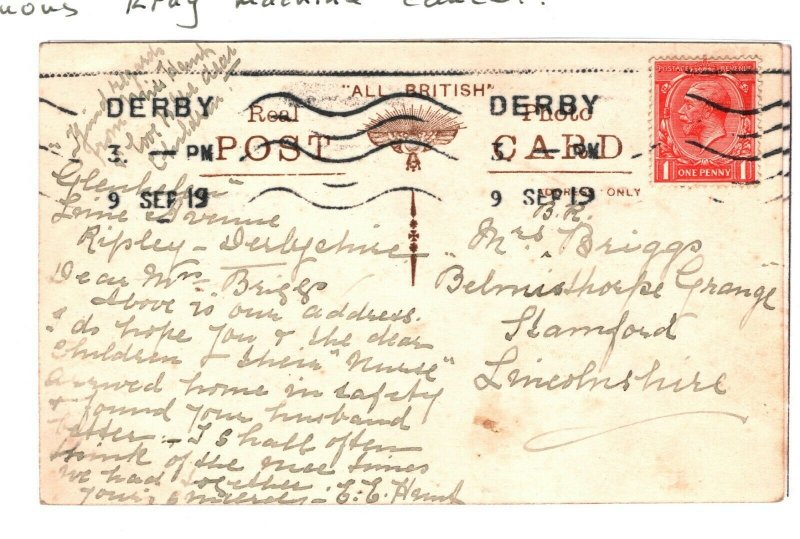 Krag machine cancel.
Kind regards
from
dear
children
DERBY
3. — PM
9 SEP 19
"ALL BRITISH"
Real Photo
POST CARD
ADDRESS ONLY
DERBY
3. — PM
9 SEP 19
POSTAGE REVENUE
1 ONE PENNY 1
Lime Avenue
Ripley - Derbyshire
Dear Mrs Briggs
Above is our address.
I do hope you & the dear
Children & their "Nurse"
arrived home in safety
& found your husband
better. - I shall often
think of the nice times
we had together.
Yours sincerely - E. E. Hunt
Mrs Briggs
Belmisthorpe Grange
Stamford
Lincolnshire